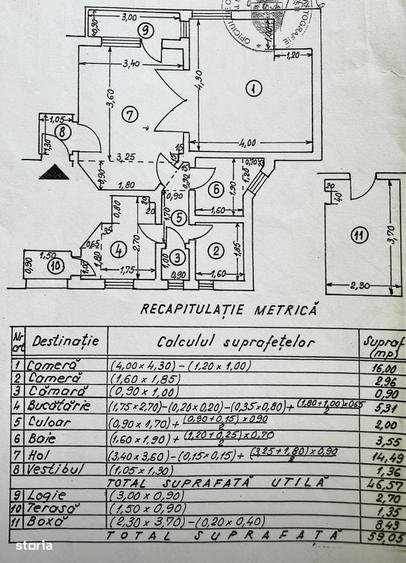 3,00
0,90
9
3,40
4,30
1,00
1,20
3,60
7
1
1,05
8
1,30
4,00
3,25
0,90
1,80
0,90
6
1,90
1,20
0,70
1,60
11
40
3,70
2,30
0,80
20
20
1,70
5
0,65
4
2,70
1,80
1,00
1,75
1,50
10
0,90
3
1,00
0,90
2
1,85
1,60
RECAPITULAȚIE METRICĂ
Nr crt Destinație Calculul suprafețelor Supraf (mp)
1 Cameră (4,00x4,30)-(1,20x1,00) 16,00
2 Cameră (1,60x1,85) 2,96
3 Cămară (0,90x1,00) 0,90
4 Bucătărie (1,75x2,70)-(0,20x0,20)-(0,35x0,80)+(1,80+1,00)x0,65/2 5,31
5 Culoar (0,90x1,70)+(0,90+0,15)x0,90/2 2,00
6 Baie (1,60x1,90)+(1,20+0,25)x0,70/2 3,55
7 Hol (3,40x3,60)-(0,15x0,15)+(3,25+1,80)x0,90/2 14,49
8 Vestibul (1,05x1,30) 1,36
TOTAL SUPRAFAȚĂ UTILĂ 46,57
9 Logie (3,00x0,90) 2,70
10 Terasă (1,50x0,90) 1,35
11 Boxă (2,30x3,70)-(0,20x0,40) 8,43
TOTAL SUPRAFAȚĂ 59,05
storia